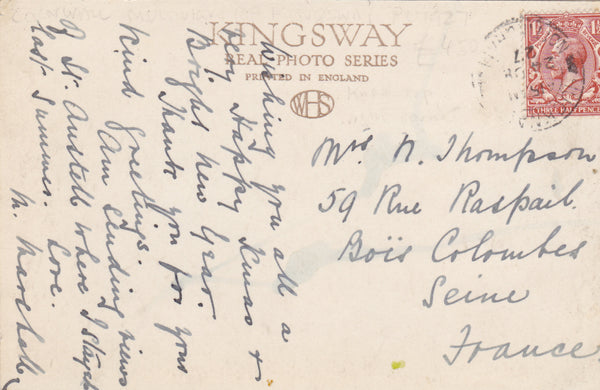 KINGSWAY
REAL PHOTO SERIES
PRINTED IN ENGLAND
WHS
Wishing you all a
Very Happy Xmas &
Bright New Year.
Thank you for your
Kind greetings.
Am sending views
of St. Austell where I stayed
last summer. Love.
M. Marshall
Mrs N. Thompson
59 Rue Raspail.
Boïs Colombes
Seine
France.
THREE HALFPENCE
27